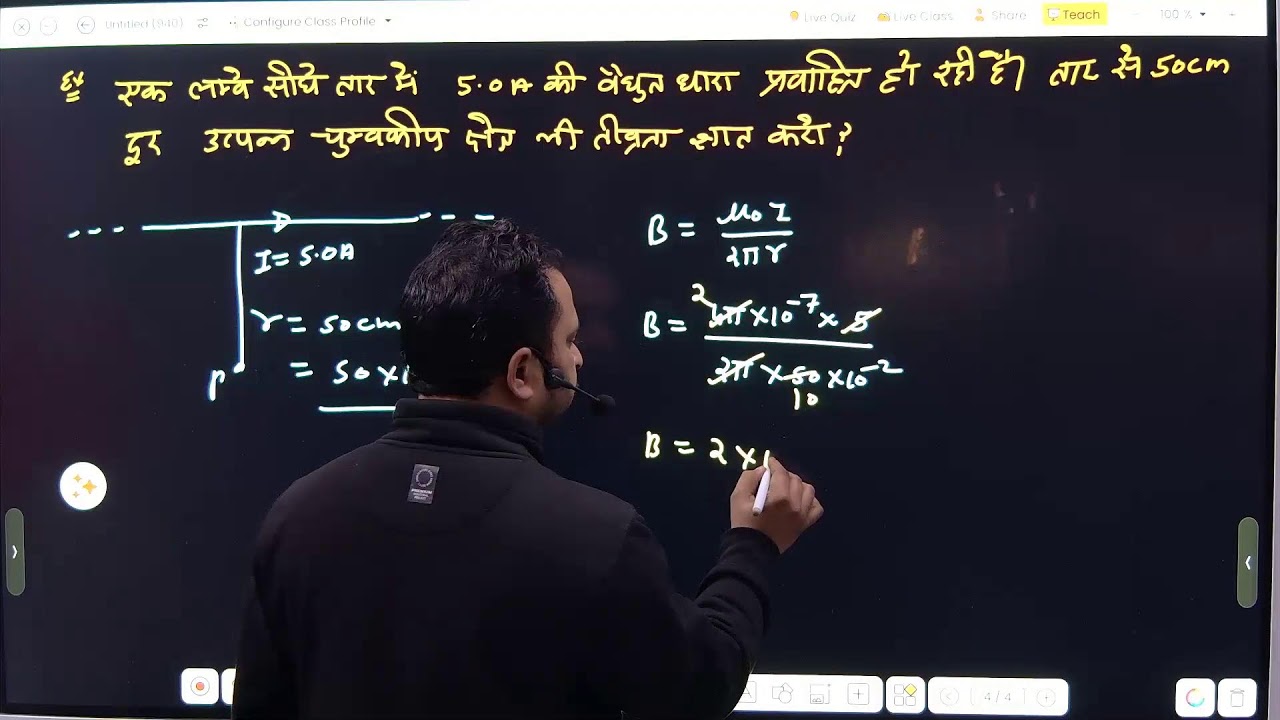 Untitled (9/40)
Configure Class Profile
Live Quiz
Live Class
Share
Teach
100 %
Ex एक लम्बे सीधे तार में 5.0A की वैधुत धारा प्रवाहित हो रही है। तार से 50cm
दूर उत्पन्न चुम्बकीय क्षेत्र की तीव्रता ज्ञात करो?
I = 5.0A
r = 50cm
= 50 x 1
P
B = μ₀I / 2πr
B = 4π x 10⁻⁷ x 5 / 2π x 50 x 10⁻²
2
10
B = 2 x 1
4 / 4